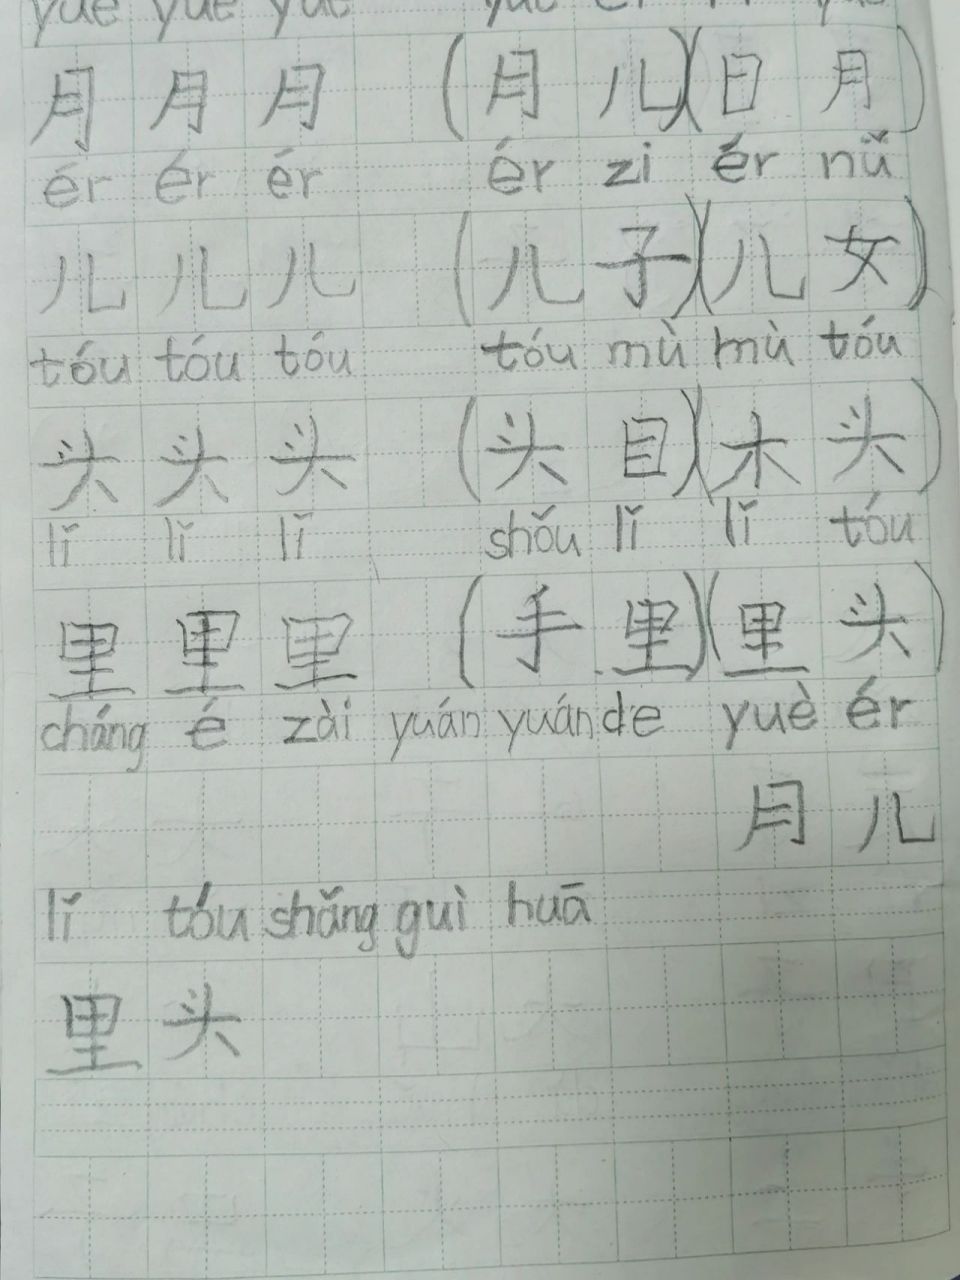 yuè yuè yuè yuè ér rì yuè
月 月 月 (月 儿)(日 月)
ér ér ér ér zi ér nǚ
儿 儿 儿 (儿 子)(儿 女)
tóu tóu tóu tóu mù mù tóu
头 头 头 (头 目)(木 头)
lǐ lǐ lǐ shǒu lǐ lǐ tóu
里 里 里 (手 里)(里 头)
cháng é zài yuán yuán de yuè ér
月 儿
lǐ tóu shǎng guì huā
里 头